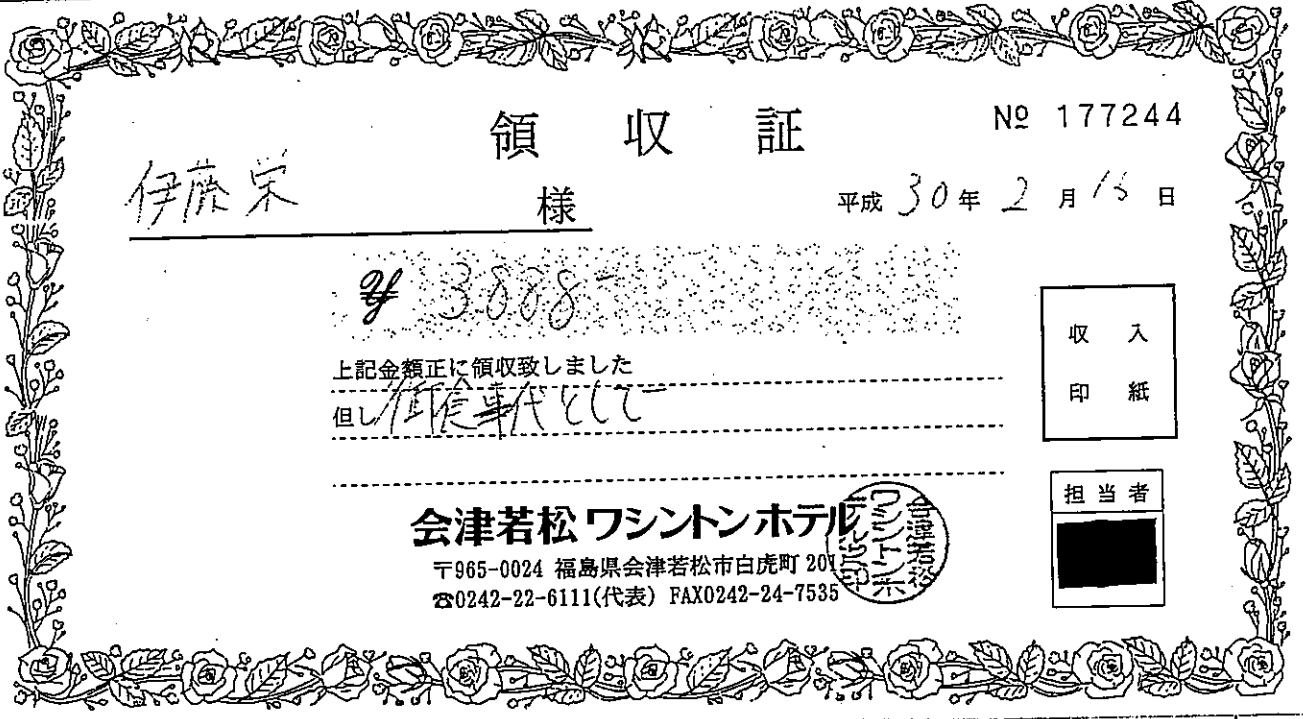 領収証
№ 177244
伊藤 栄 様
平成 30 年 2 月 15 日
¥ 3,808-
上記金額正に領収致しました
但し 御食事代として
収入
印紙
会津若松ワシントンホテル
〒965-0024 福島県会津若松市白虎町 201
☎0242-22-6111(代表) FAX0242-24-7535
会津若松
ワシントンホ
テル之印
担当者